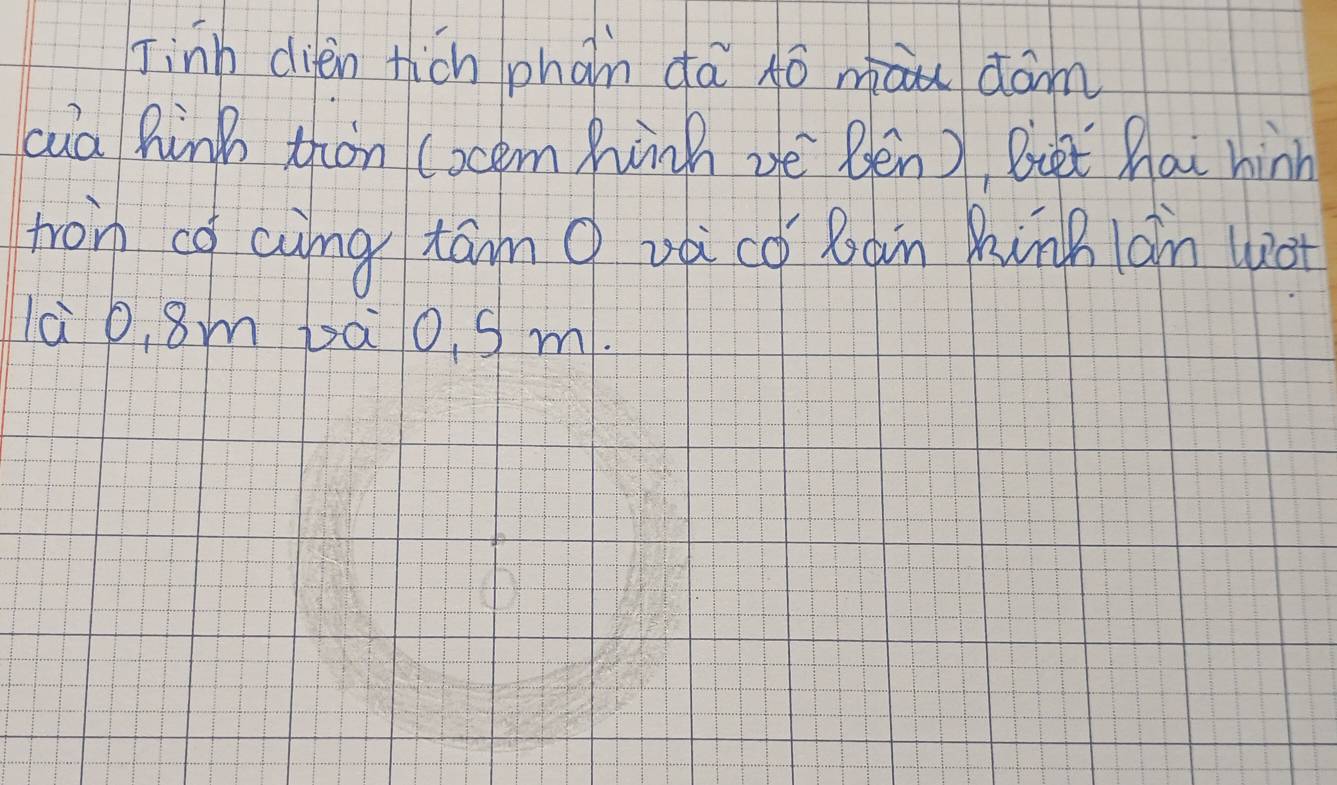 Tính diện tích phần đã tô màu đậm
của hình tròn (xem hình vẽ bên), biết hai hình
tròn có cùng tâm O và có bán kính lần lượt
là 0,8m và 0,5 m.
O